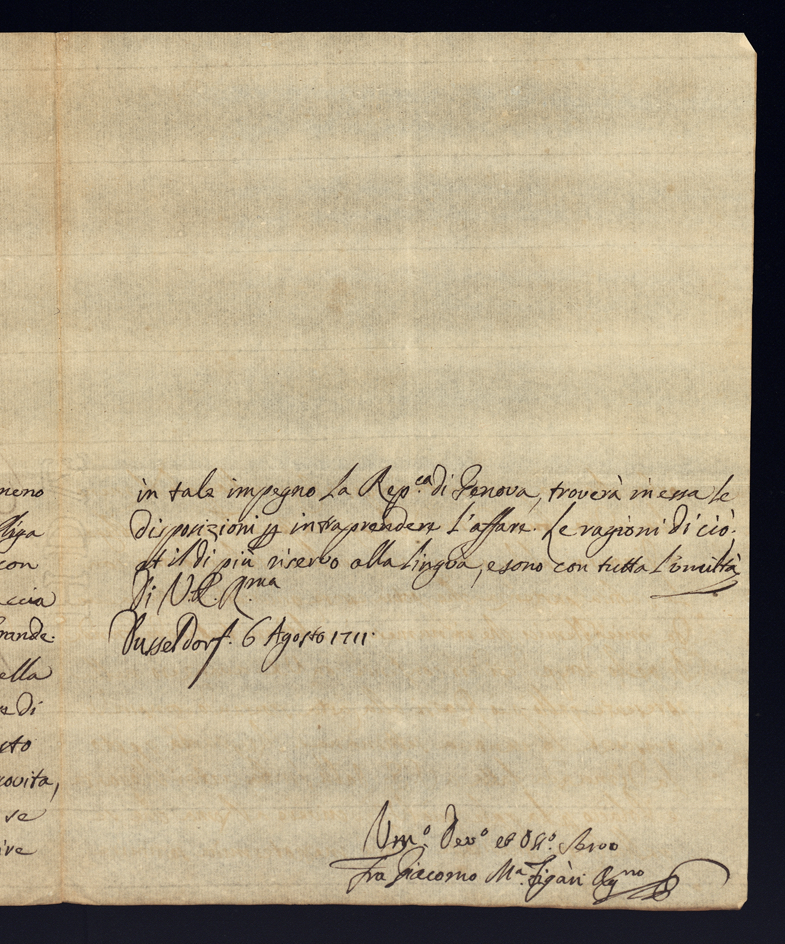 in tale impegno la Rep.ca di Genova, troverà in essa le
disposizioni p intraprendere l'affare. Le ragioni di ciò,
et il di più riservo alla lingua, e sono con tutta l'umiltà
Di V. P. R.ma
Dusseldorf. 6 Agosto 1711.
Um.o Dev.o et Obl.o Servo
Fra Giacomo M.a Figàri
meno
con
ccia
rande.
ella
di
sto
rovita,
ve
ive